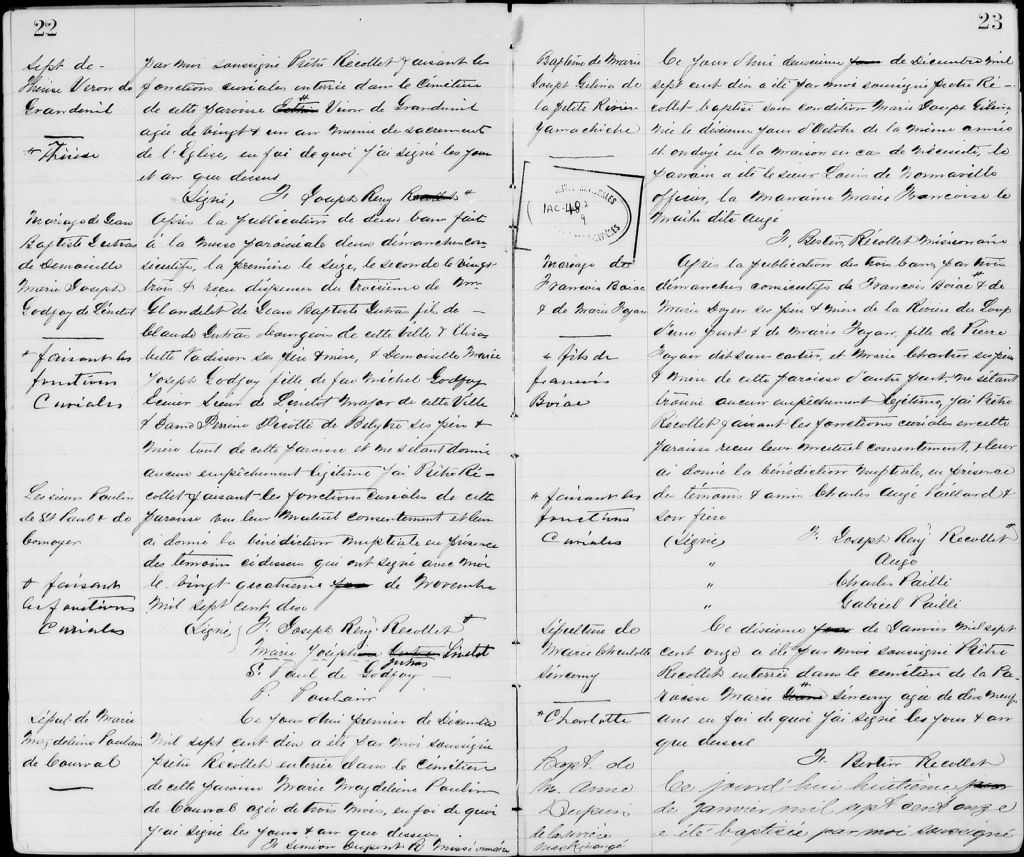 22
Sept de
Thérèse Veron de
Grandenil
* Thérèse
par moi soussigné Prêtre Récollet faisant les
fonctions curiales enterrée dans le Cimétière
de cette paroisse Veron de Grandenil
agée de vingt & un an munie de sacrement
de l'Eglise, en foi de quoi j'ai signé les jour
et an que dessus
Signé, F. Joseph Reny
Mariage de Jean
Baptiste Dutras
de Demoiselle
Marie Joseph
Godfoy de Linctot
* faisant les
fonctions
Curiales
Après la publication de deux bans fait
à la messe paroissiale deux dimanches con
sécutifs, la première le seize, le seconde le vingt
trois & reçu dispense du troisième de Mr.
Glandelet de Jean Baptiste Dutras fils de
Claude Dutras bourgois de cette Ville & Elisa
bette Radisson ses père & mère, & Demoiselle Marie
Joseph Godfoy fille de feu Michel Godfoy
Sieur de Linctot Major de cette Ville
& Dame Perrine Picotté de Belestre ses père &
mère tout de cette paroisse et ne s'étant donné
aucun empêchement légitime j'ai Prêtre Ré-
collet faisant les fonctions curiales de cette
paroisse vu leur mutuel consentement et leur
ai donné la bénédiction nuptiale en présence
des témoins ci dessus qui ont signé avec moi
le vingt quatrième jour de Novembre
mil sept cent dix
Les sieurs Poulin
de St Paul & de
Conoyer
+ faisant
les fonctions
Curiales
Signé F. Joseph Reny Recollet +
Marie Joseph Linctot
Dutras
S. Paul de Godfoy
P. Poulain
Sépul. de Marie
Magdeleine Poulain
de Courval
Ce jour d'hui premier de Décembre
mil sept cent dix a été par moi soussigné
prêtre Recollet enterrée dans le Cimétière
de cette paroisse Marie Magdeleine Poulin
de Courval agée de trois mois, en foi de quoi
j'ai signé les jours & an que dessus
F. Siméon Dupont R. missionnaire
23
Baptême de Marie
Joseph Gelina de
la Petite Rivière
Yamachiche
Ce jour d'hui deuxième jour de Décembre mil
sept cent dix a été par moi soussigné prêtre Ré-
collet baptisé sous condition Marie Joseph Gelina
née le dixième jour d'Octobre de la même année
et ondoyé en la maison en cas de nécessité, le
parrain a été le sieur Louis de Normanville
officier, la Marraine Marie Francoise le
Maitre dite Augé
F. Bertin, Récollet Missionaire
IAC-48
Mariage de
Francois Boiac
& de Marie Fayan
* fils de
francois
Boiac
* faisant les
fonctions
Curiales
Après la publication des trois bans, par trois
dimanches consécutifs de Francois Boiac * & de
Marie Doyer ses père & mère de la Rivière du Loup
d'une part & de Marie Fayan, fille de Pierre
Fayan dit sans cartier, et Marie Chartier ses père
& mère de cette paroisse d'autre part, ne s'étant
trouvé aucun empêchement légitime, j'ai Prêtre
Récollet faisant les fonctions curiales en cette
paroisse recu leur mutuel consentement, & leur
ai donné la bénédiction nuptiale, en présence
des témoins & amis Charles Augé Paillard &
son frère
(Signé) F. Joseph Reny Recollet *
" Augé
" Charles Paillé
" Gabriel Paillé
Sépulture de
Marie Charlotte
Sincerny
* Charlotte
Ce dixième jour de Janvier mil sept
cent onze a été par moi soussigné Prêtre
Recollet enterrée dans le cimétière de la Pa-
roisse Marie Sincerny agée de dix neuf
ans en foi de quoi j'ai signé les jour & an
que dessus
F. Bertin Recollet
Bapt. de
M. Anne
Dupuis
de la rivière
maskinongé
Ce jourd'hui huitième jour
de Janvier mil sept cent onze
a été baptisée par moi soussigné